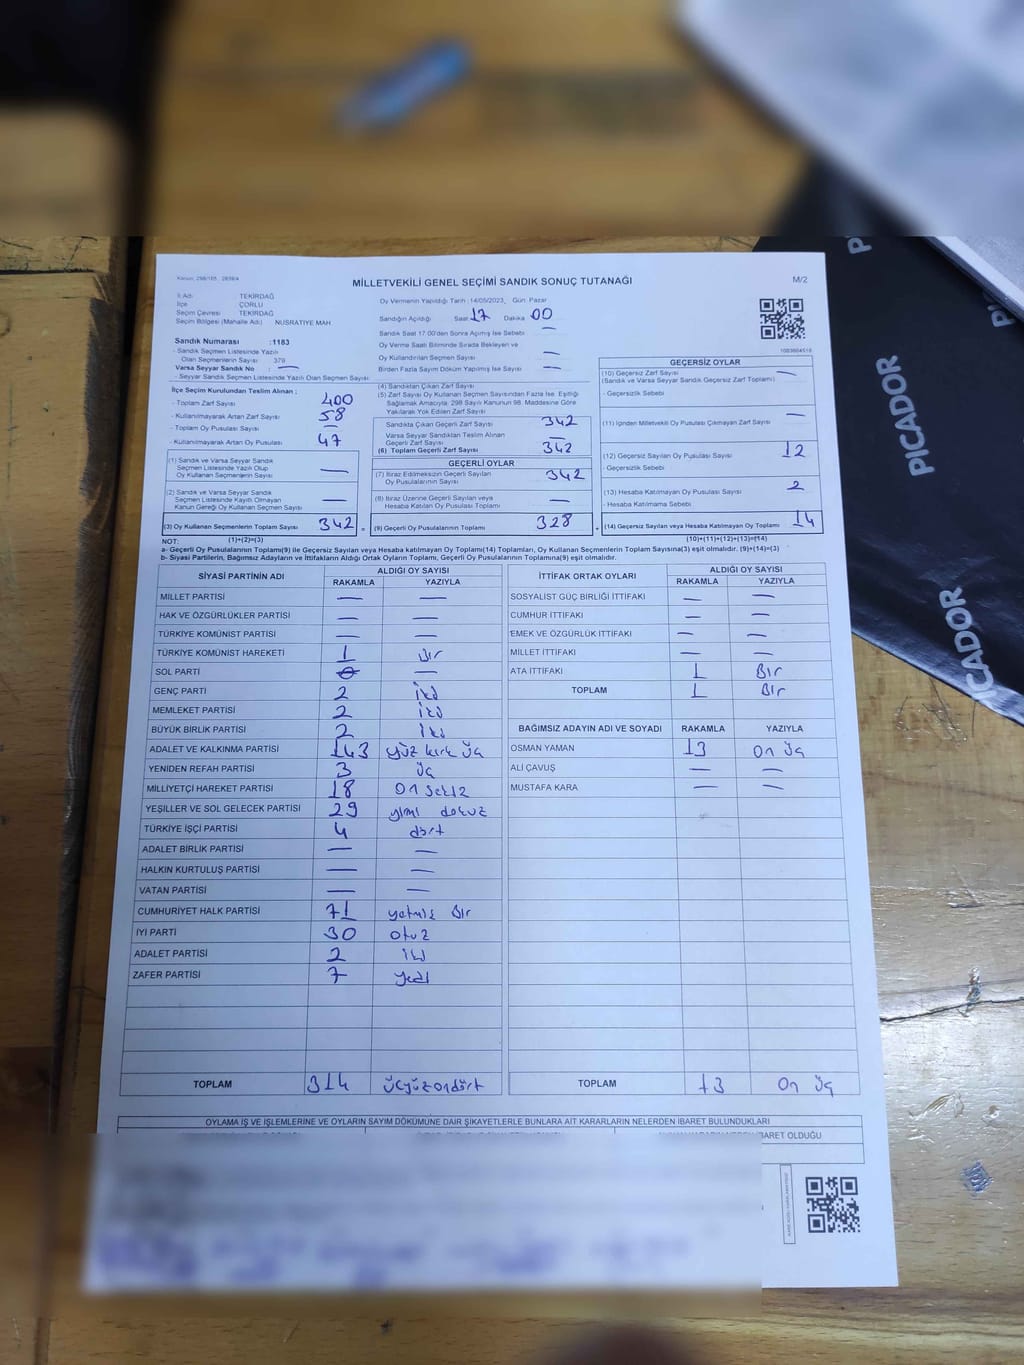 Kanun: 298/105 , 2839/4
MİLLETVEKİLİ GENEL SEÇİMİ SANDIK SONUÇ TUTANAĞI
M/2
İl Adı TEKİRDAĞ
İlçe ÇORLU
Seçim Çevresi TEKİRDAĞ
Seçim Bölgesi (Mahalle Adı) NUSRATİYE MAH.
Oy Vermenin Yapıldığı Tarih :14/05/2023, Gün: Pazar
Sandığın Açıldığı Saat 17 Dakika 00
Sandık Saat 17:00'den Sonra Açılmış İse Sebebi —
Oy Verme Saati Bitiminde Sırada Bekleyen ve
Oy Kullandırılan Seçmen Sayısı —
Birden Fazla Sayım Döküm Yapılmış İse Sayısı —
Sandık Numarası :1183
- Sandık Seçmen Listesinde Yazılı
Olan Seçmenlerin Sayısı 379
Varsa Seyyar Sandık No : —
- Seyyar Sandık Seçmen Listesinde Yazılı Olan Seçmen Sayısı
İlçe Seçim Kurulundan Teslim Alınan ;
- Toplam Zarf Sayısı 400
- Kullanılmayarak Artan Zarf Sayısı 58
- Toplam Oy Pusulası Sayısı —
- Kullanılmayarak Artan Oy Pusulası 47
(1) Sandık ve Varsa Seyyar Sandık
Seçmen Listesinde Yazılı Olup
Oy Kullanan Seçmenlerin Sayısı —
(2) Sandık ve Varsa Seyyar Sandık
Seçmen Listesinde Kayıtlı Olmayan
Kanun Gereği Oy Kullanan Seçmen Sayısı —
(3) Oy Kullanan Seçmenlerin Toplam Sayısı 342
(1)+(2)=(3)
(4) Sandıktan Çıkan Zarf Sayısı
(5) Zarf Sayısı Oy Kullanan Seçmen Sayısından Fazla İse, Eşitliği
Sağlamak Amacıyla; 298 Sayılı Kanunun 98. Maddesine Göre
Yakılarak Yok Edilen Zarf Sayısı
Sandıkta Çıkan Geçerli Zarf Sayısı 342
Varsa Seyyar Sandıktan Teslim Alınan
Geçerli Zarf Sayısı —
(6) Toplam Geçerli Zarf Sayısı 342
GEÇERLİ OYLAR
(7) İtiraz Edilmeksizin Geçerli Sayılan
Oy Pusulalarının Sayısı 342
(8) İtiraz Üzerine Geçerli Sayılan veya
Hesaba Katılan Oy Pusulası Toplamı —
= (9) Geçerli Oy Pusulalarının Toplamı 328
1083664518
GEÇERSİZ OYLAR
(10) Geçersiz Zarf Sayısı —
(Sandık ve Varsa Seyyar Sandık Geçersiz Zarf Toplamı)
- Geçersizlik Sebebi
(11) İçinden Milletvekili Oy Pusulası Çıkmayan Zarf Sayısı —
(12) Geçersiz Sayılan Oy Pusulası Sayısı 12
- Geçersizlik Sebebi
(13) Hesaba Katılmayan Oy Pusulası Sayısı 2
- Hesaba Katılmama Sebebi
+ (14) Geçersiz Sayılan veya Hesaba Katılmayan Oy Toplamı 14
(10)+(11)+(12)+(13)=(14)
NOT:
a- Geçerli Oy Pusulalarının Toplamı(9) ile Geçersiz Sayılan veya Hesaba katılmayan Oy Toplamı(14) Toplamları, Oy Kullanan Seçmenlerin Toplam Sayısına(3) eşit olmalıdır. (9)+(14)=(3)
b- Siyasi Partilerin, Bağımsız Adayların ve İttifakların Aldığı Ortak Oyların Toplamı, Geçerli Oy Pusulalarının Toplamına(9) eşit olmalıdır.
SİYASİ PARTİNİN ADI ALDIĞI OY SAYISI
RAKAMLA YAZIYLA
MİLLET PARTİSİ — —
HAK VE ÖZGÜRLÜKLER PARTİSİ — —
TÜRKİYE KOMÜNİST PARTİSİ — —
TÜRKİYE KOMÜNİST HAREKETİ 1 Bir
SOL PARTİ 0 —
GENÇ PARTİ 2 iki
MEMLEKET PARTİSİ 2 iki
BÜYÜK BİRLİK PARTİSİ 2 iki
ADALET VE KALKINMA PARTİSİ 143 yüz kırk üç
YENİDEN REFAH PARTİSİ 3 üç
MİLLİYETÇİ HAREKET PARTİSİ 18 on sekiz
YEŞİLLER VE SOL GELECEK PARTİSİ 29 yimi dokuz
TÜRKİYE İŞÇİ PARTİSİ 4 dört
ADALET BİRLİK PARTİSİ — —
HALKIN KURTULUŞ PARTİSİ — —
VATAN PARTİSİ — —
CUMHURİYET HALK PARTİSİ 71 yetmiş Bir
İYİ PARTİ 30 otuz
ADALET PARTİSİ 2 iki
ZAFER PARTİSİ 7 yedi
TOPLAM 314 üçyüzondört
İTTİFAK ORTAK OYLARI ALDIĞI OY SAYISI
RAKAMLA YAZIYLA
SOSYALİST GÜÇ BİRLİĞİ İTTİFAKI — —
CUMHUR İTTİFAKI — —
EMEK VE ÖZGÜRLÜK İTTİFAKI — —
MİLLET İTTİFAKI — —
ATA İTTİFAKI 1 Bir
TOPLAM 1 Bir
BAĞIMSIZ ADAYIN ADI VE SOYADI RAKAMLA YAZIYLA
OSMAN YAMAN 13 on üç
ALİ ÇAVUŞ — —
MUSTAFA KARA — —
TOPLAM 13 on üç
OYLAMA İŞ VE İŞLEMLERİNE VE OYLARIN SAYIM DÖKÜMÜNE DAİR ŞİKAYETLERLE BUNLARA AİT KARARLARIN NELERDEN İBARET BULUNDUKLARI
İBARET OLDUĞU
PICADOR
PICADOR